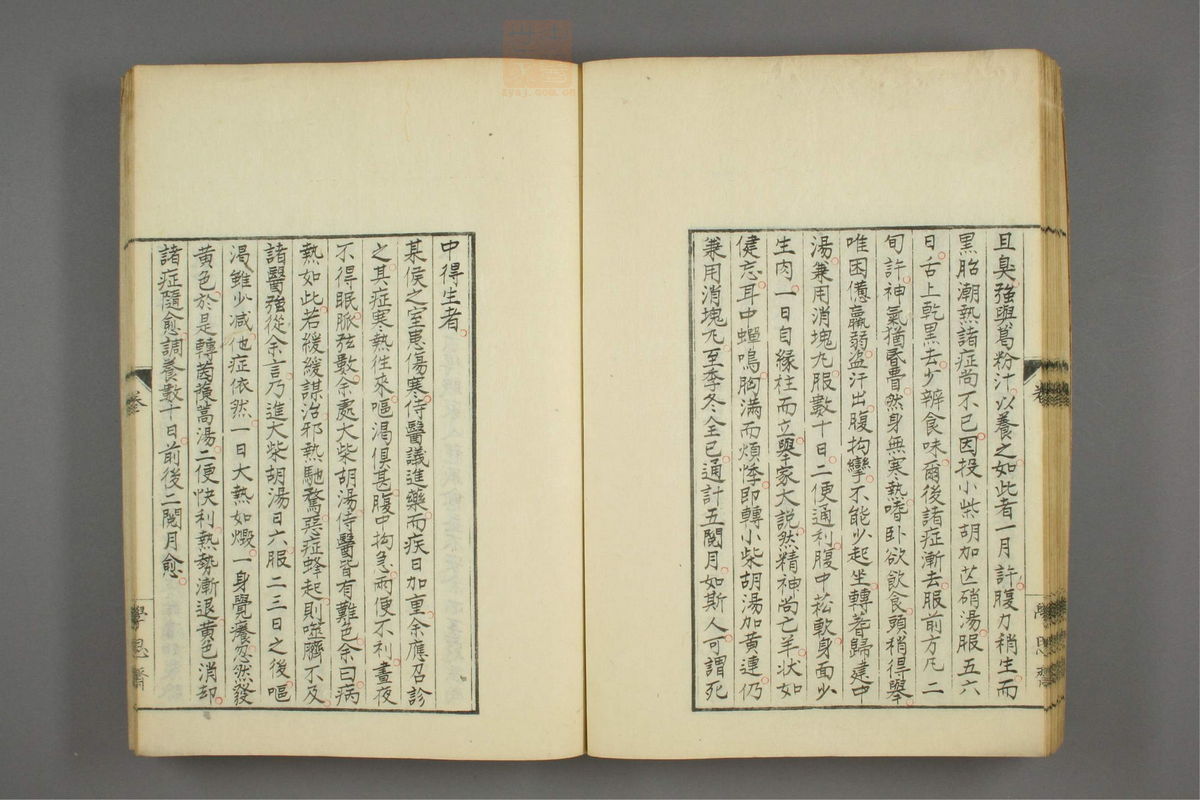 且臭強與葛粉汁以養之如此者一月許腹力稍生而
黑胎潮熱諸症尚不已因投小柴胡加芒硝湯服五六
日舌上乾黑去少辨食味爾後諸症漸去服前方凡二
旬許神氣猶昏瞢然身無寒熱嗜卧欲飲食頭稍得舉
唯困憊羸弱盜汗出腹拘攣不能少起坐轉蓍歸建中
湯兼用消塊丸服數十日二便通利腹中菘軟身面少
生肉一日自緣柱而立擧家大説然精神尚亡羊状如
健忘耳中蟬鳴胸滿而煩悸即轉小柴胡湯加黄連仍
兼用消塊丸至季冬全已通計五閲月如斯人可謂死
中得生者
某侯之室患傷寒侍醫議進藥而疾日加重余應召診
之其症寒熱往來嘔渇倶甚腹中拘急兩便不利晝夜
不得眠脈弦數余處大柴胡湯侍醫皆有難色余曰病
熱如此若緩緩謀治邪熱馳騖惡症蜂起則噬臍不及
諸醫強從余言乃進大柴胡湯日六服二三日之後嘔
渇雖少減他症依然一日大熱如燬一身覺癢忽然發
黄色於是轉茵蔯蒿湯二便快利熱勢漸退黄色消却
諸症隨愈調養數十日前後二閲月愈
卷
學思齋